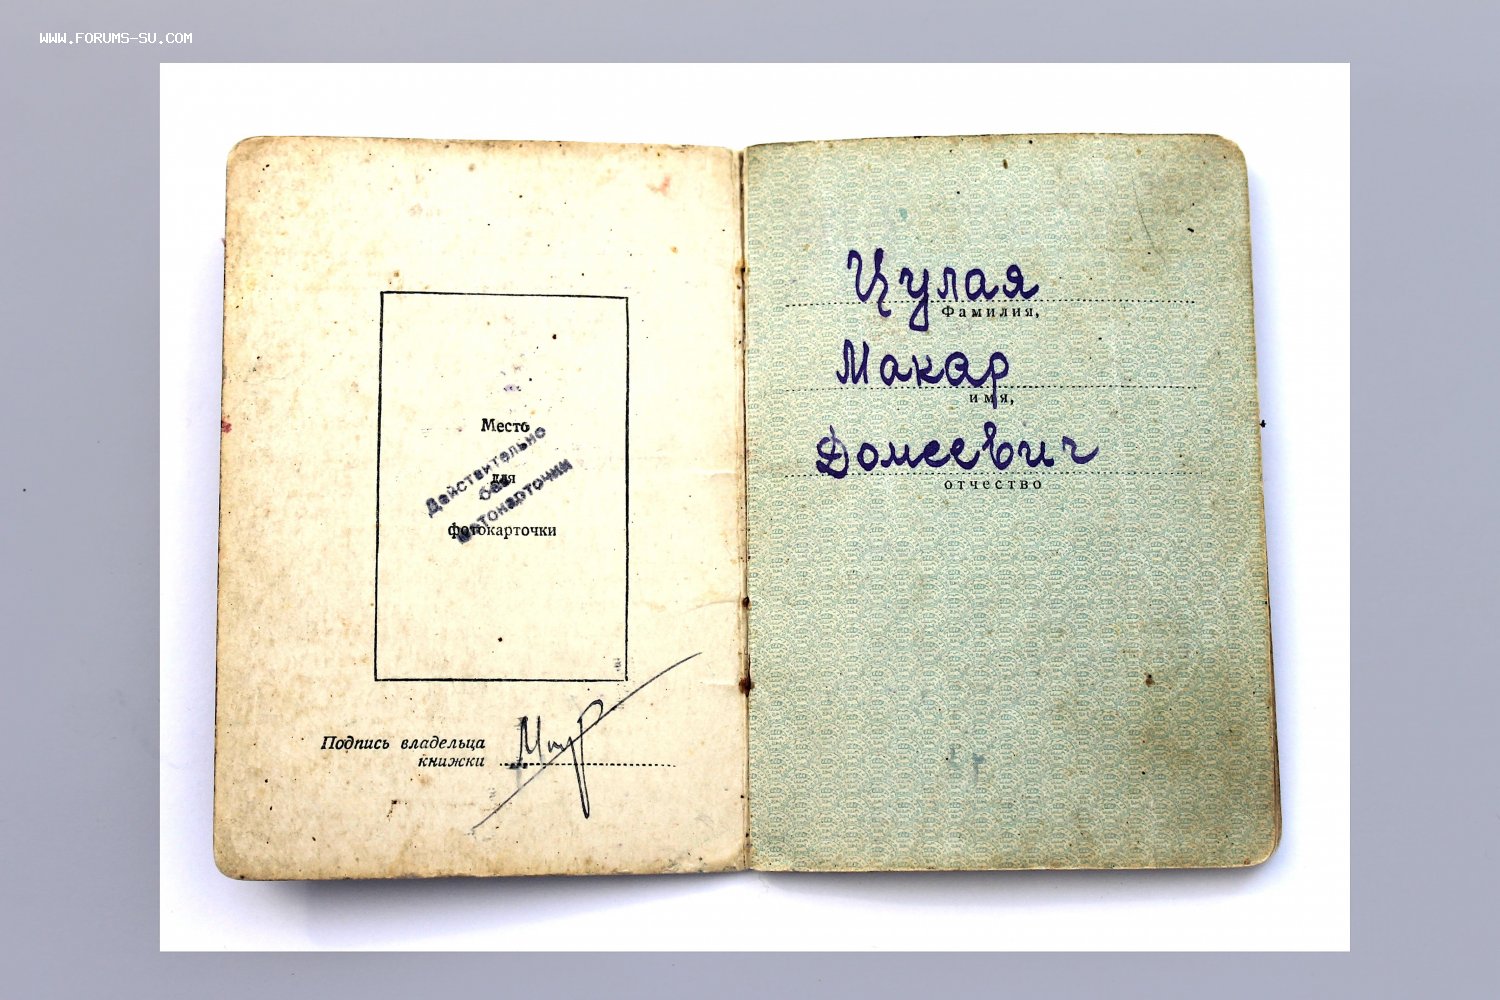 WWW.FORUMS-SU.COM
Место
для
фотокарточки
Действительно
без
фотокарточки
Подпись владельца
книжки
Цулая
Фамилия,
Макар
имя,
Домеевич
отчество